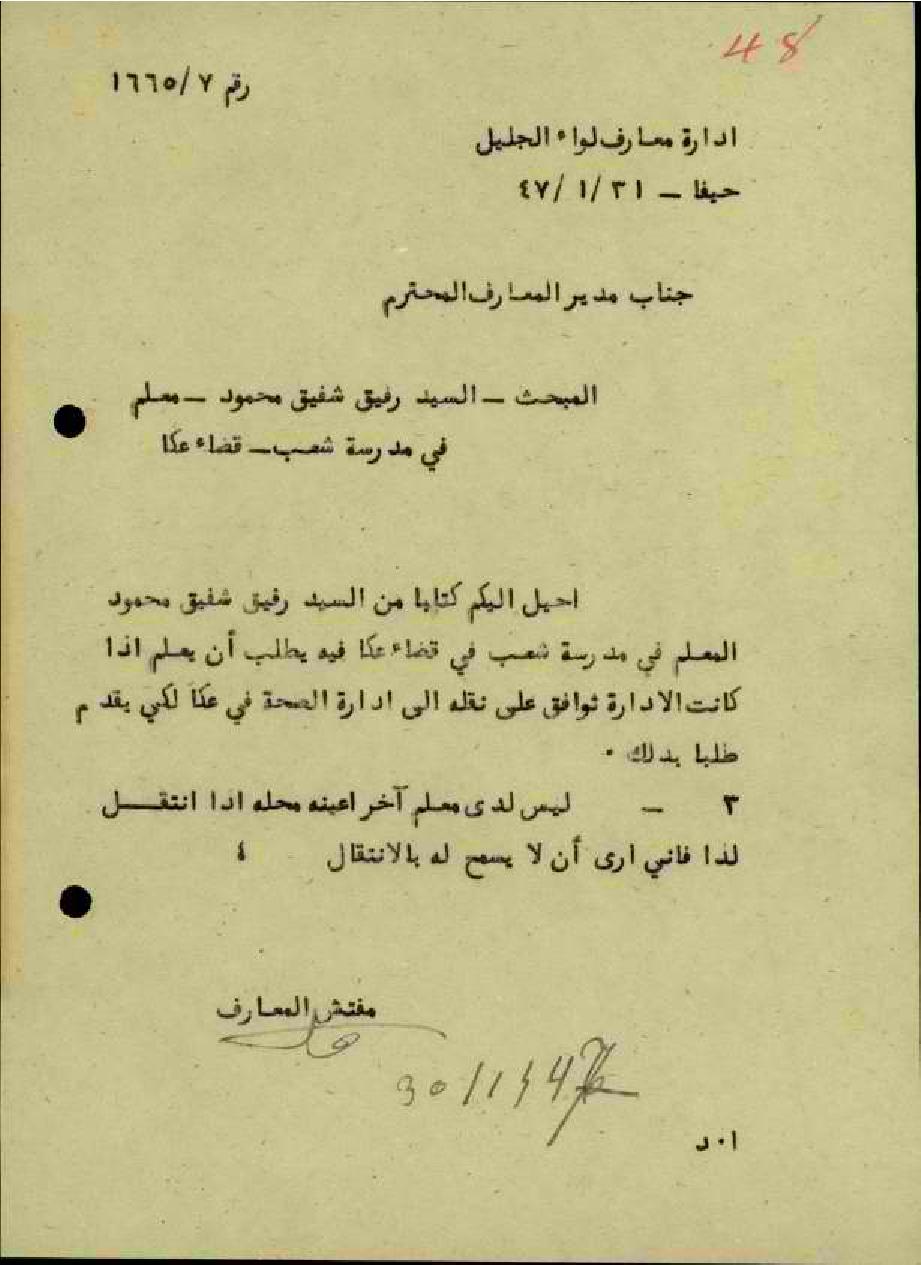 48
رقم ١٦٦٥/٧
ادارة معارف لواء الجليل
حيفا – ٣١ /١/ ٤٧
جناب مدير المعارف المحترم
المبحث – السيد رفيق شفيق محمود – معلم
في مدرسة شعب – قضاء عكا
احيل اليكم كتابا من السيد رفيق شفيق محمود
المعلم في مدرسة شعب في قضاء عكا فيه يطلب أن يعلم اذا
كانت الادارة توافق على نقله الى ادارة الصحة في عكا لكي يقدم
طلبا بذلك .
٣ – ليس لدى معلم آخر اعينه محله اذا انتقل
لذا فاني ارى أن لا يسمح له بالانتقال ٤
مفتش المعارف
30/1/47
ا٠د